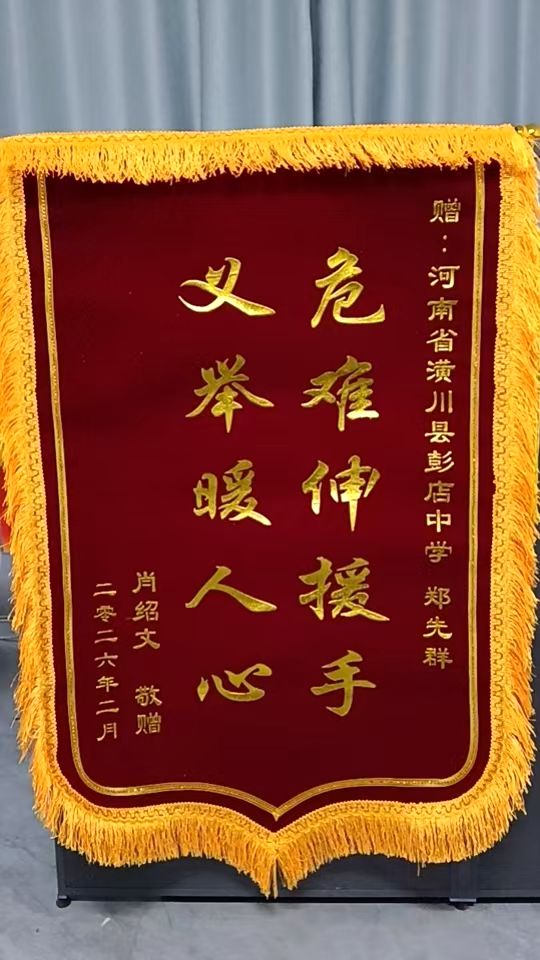 赠：河南省潢川县彭店中学 郑先群
危难伸援手
义举暖人心
肖绍文 敬赠
二零二六年二月